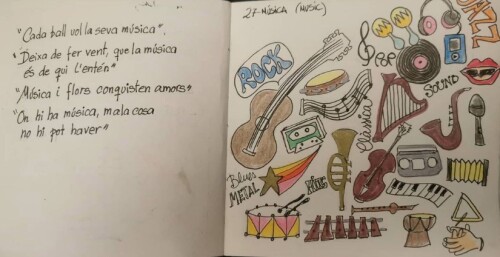 "Cada ball vol la seva música".
"Deixa de fer vent, que la música
és de qui l'entén"
"Música i flors conquisten amors"
"On hi ha música, mala cosa
no hi pot haver"
27-MÚSICA (MUSIC)
JAZZ
POP
ROCK
SOUND
Clàssica
Blues
METAL